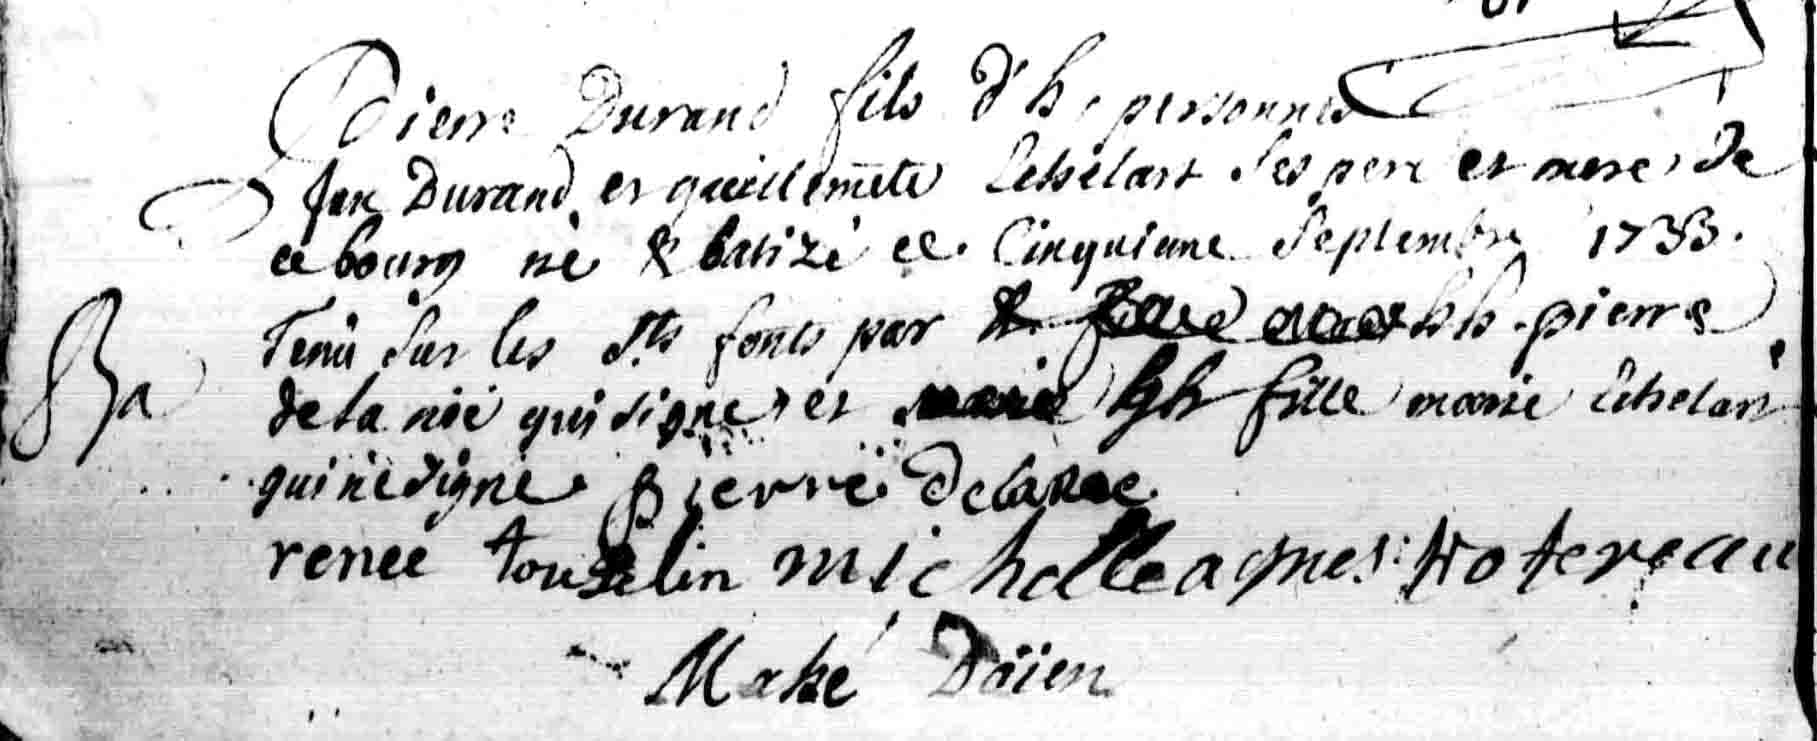 Pierre Durand fils d'h. personnes
Jan Durand et guillemete Lehelart ses pere et mere, de
ce bourg né & batizé ce Cinquieme Septembre 1733.
Tenu sur les sts fonts par hh. pierre
de la noë qui signe et hh fille marie Lehelart
qui ne signe pierre delanoe
renee touselin michelle agnes
Mahé Doien